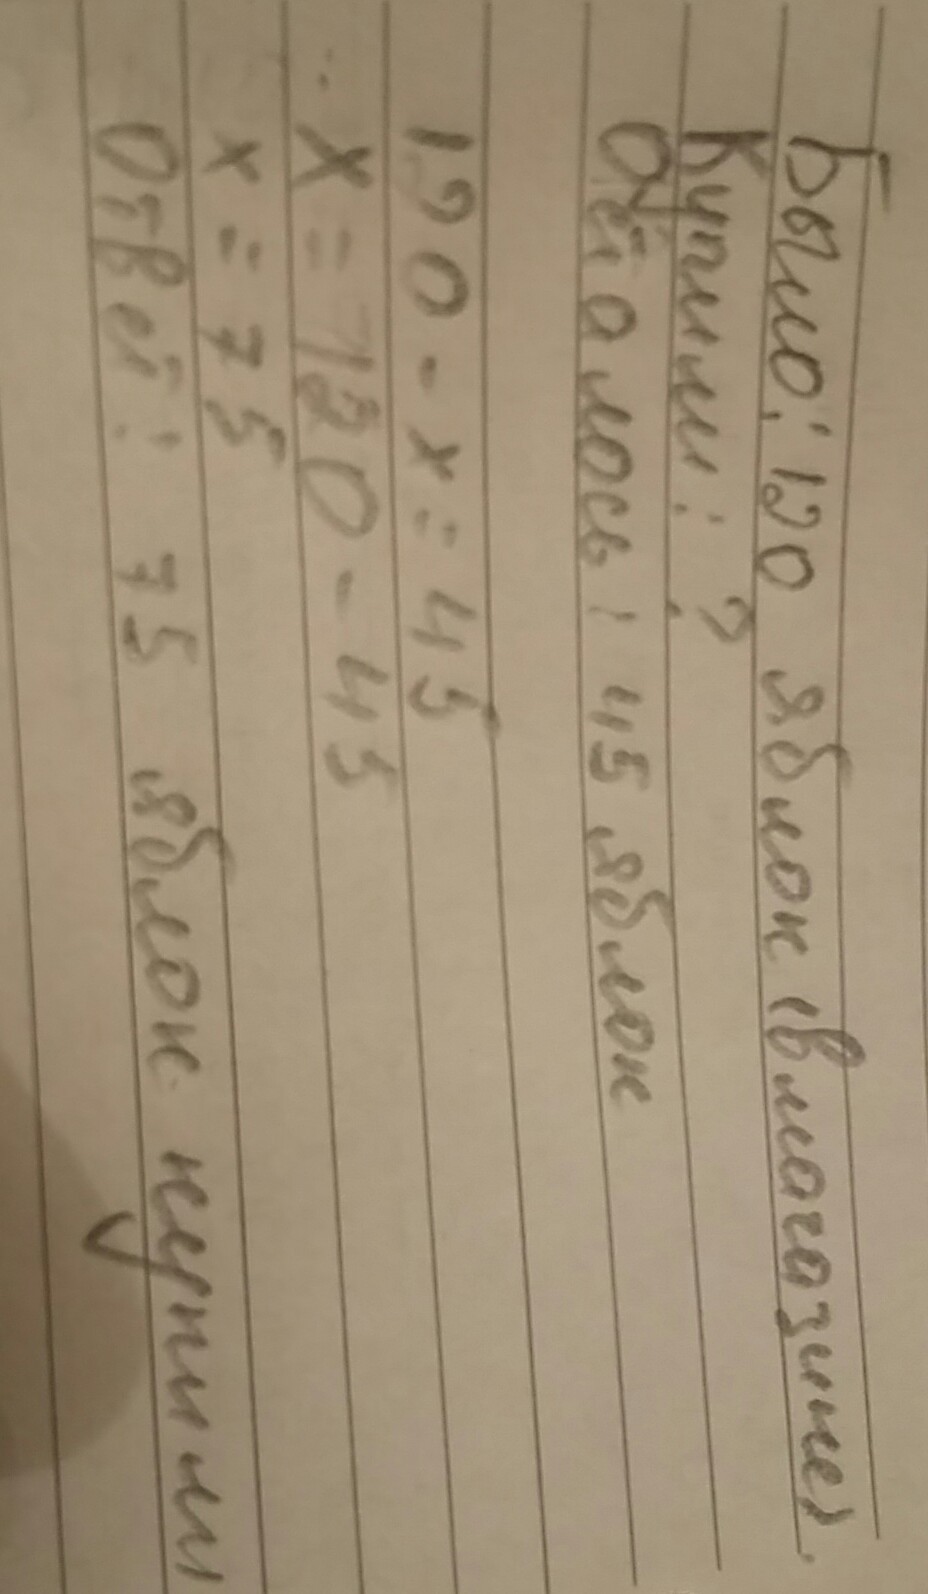 Было: 120 яблок (в магазине).
Купили: ?
Осталось: 45 яблок
120 - x = 45
x = 120 - 45
x = 75
Ответ: 75 яблок купили